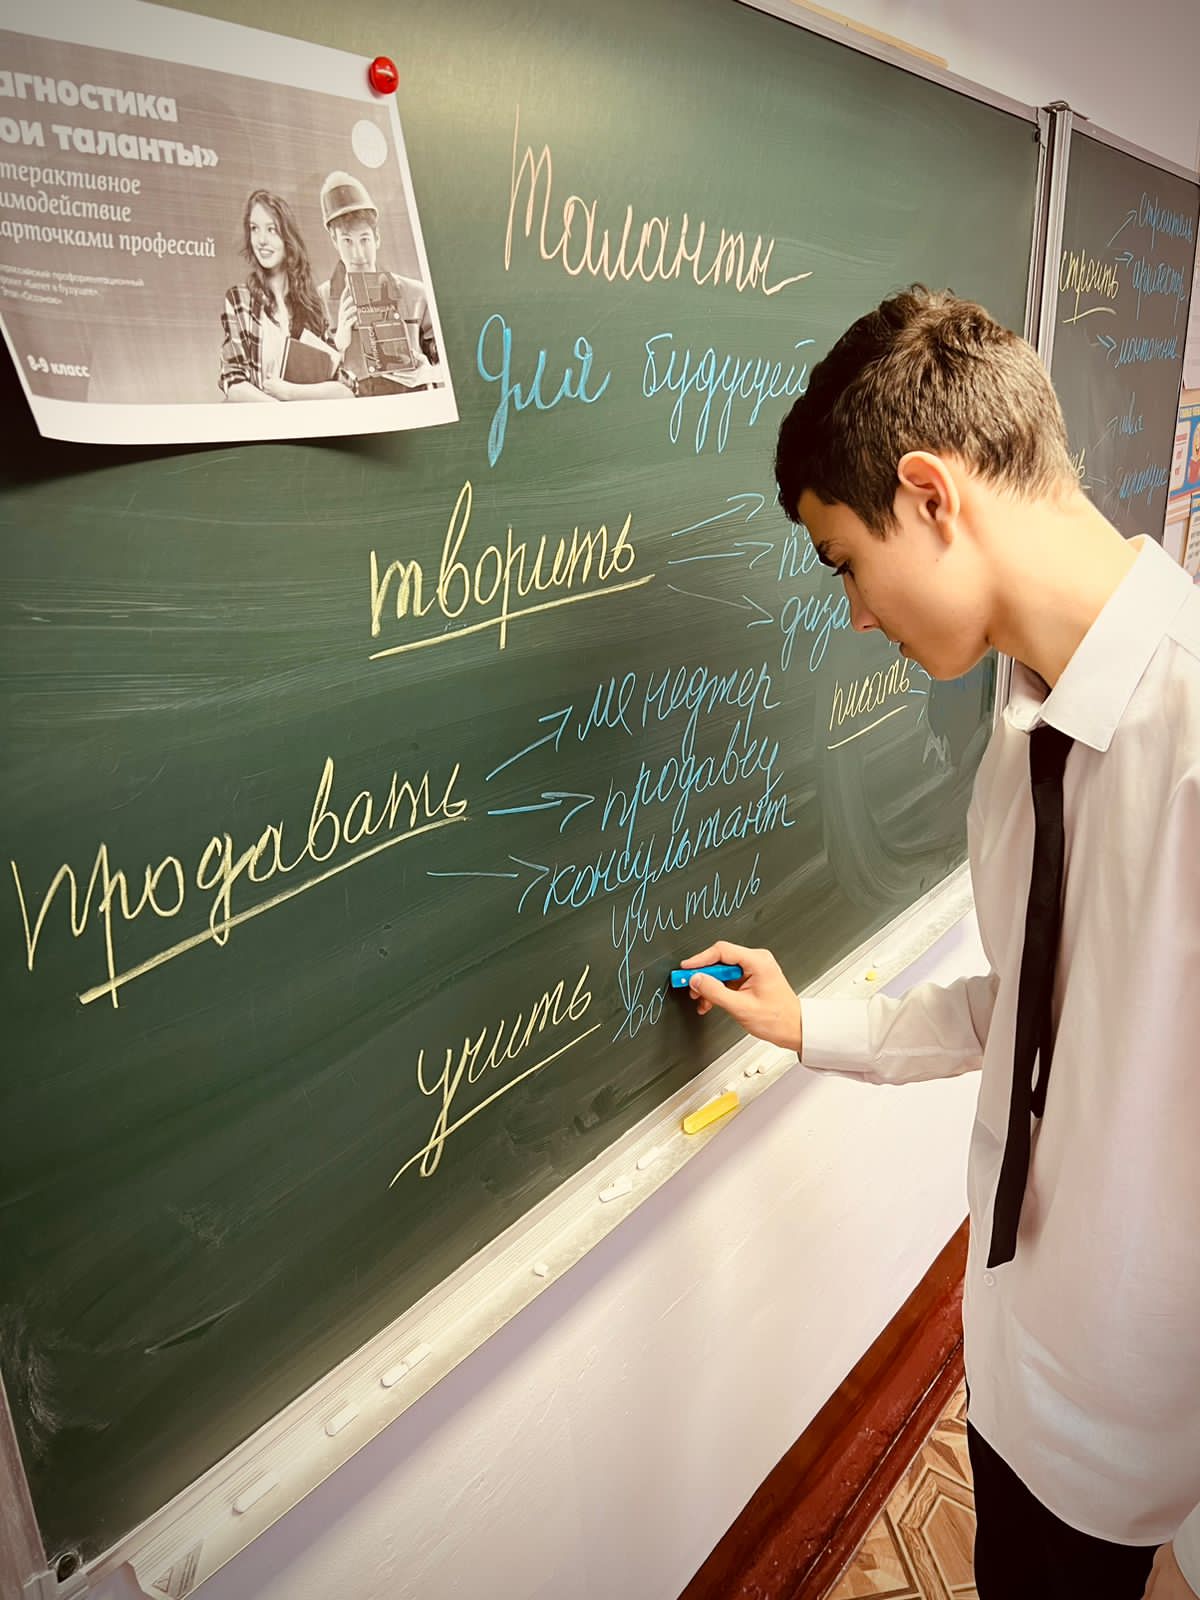 агностика
ои таланты»
терактивное
имодействие
арточками профессий
8-9 класс
Таланты
для будущей
творить
пе
диза
продавать
менеджер
продавец
консультант
писать
учить
учитель
во
строить
строитель